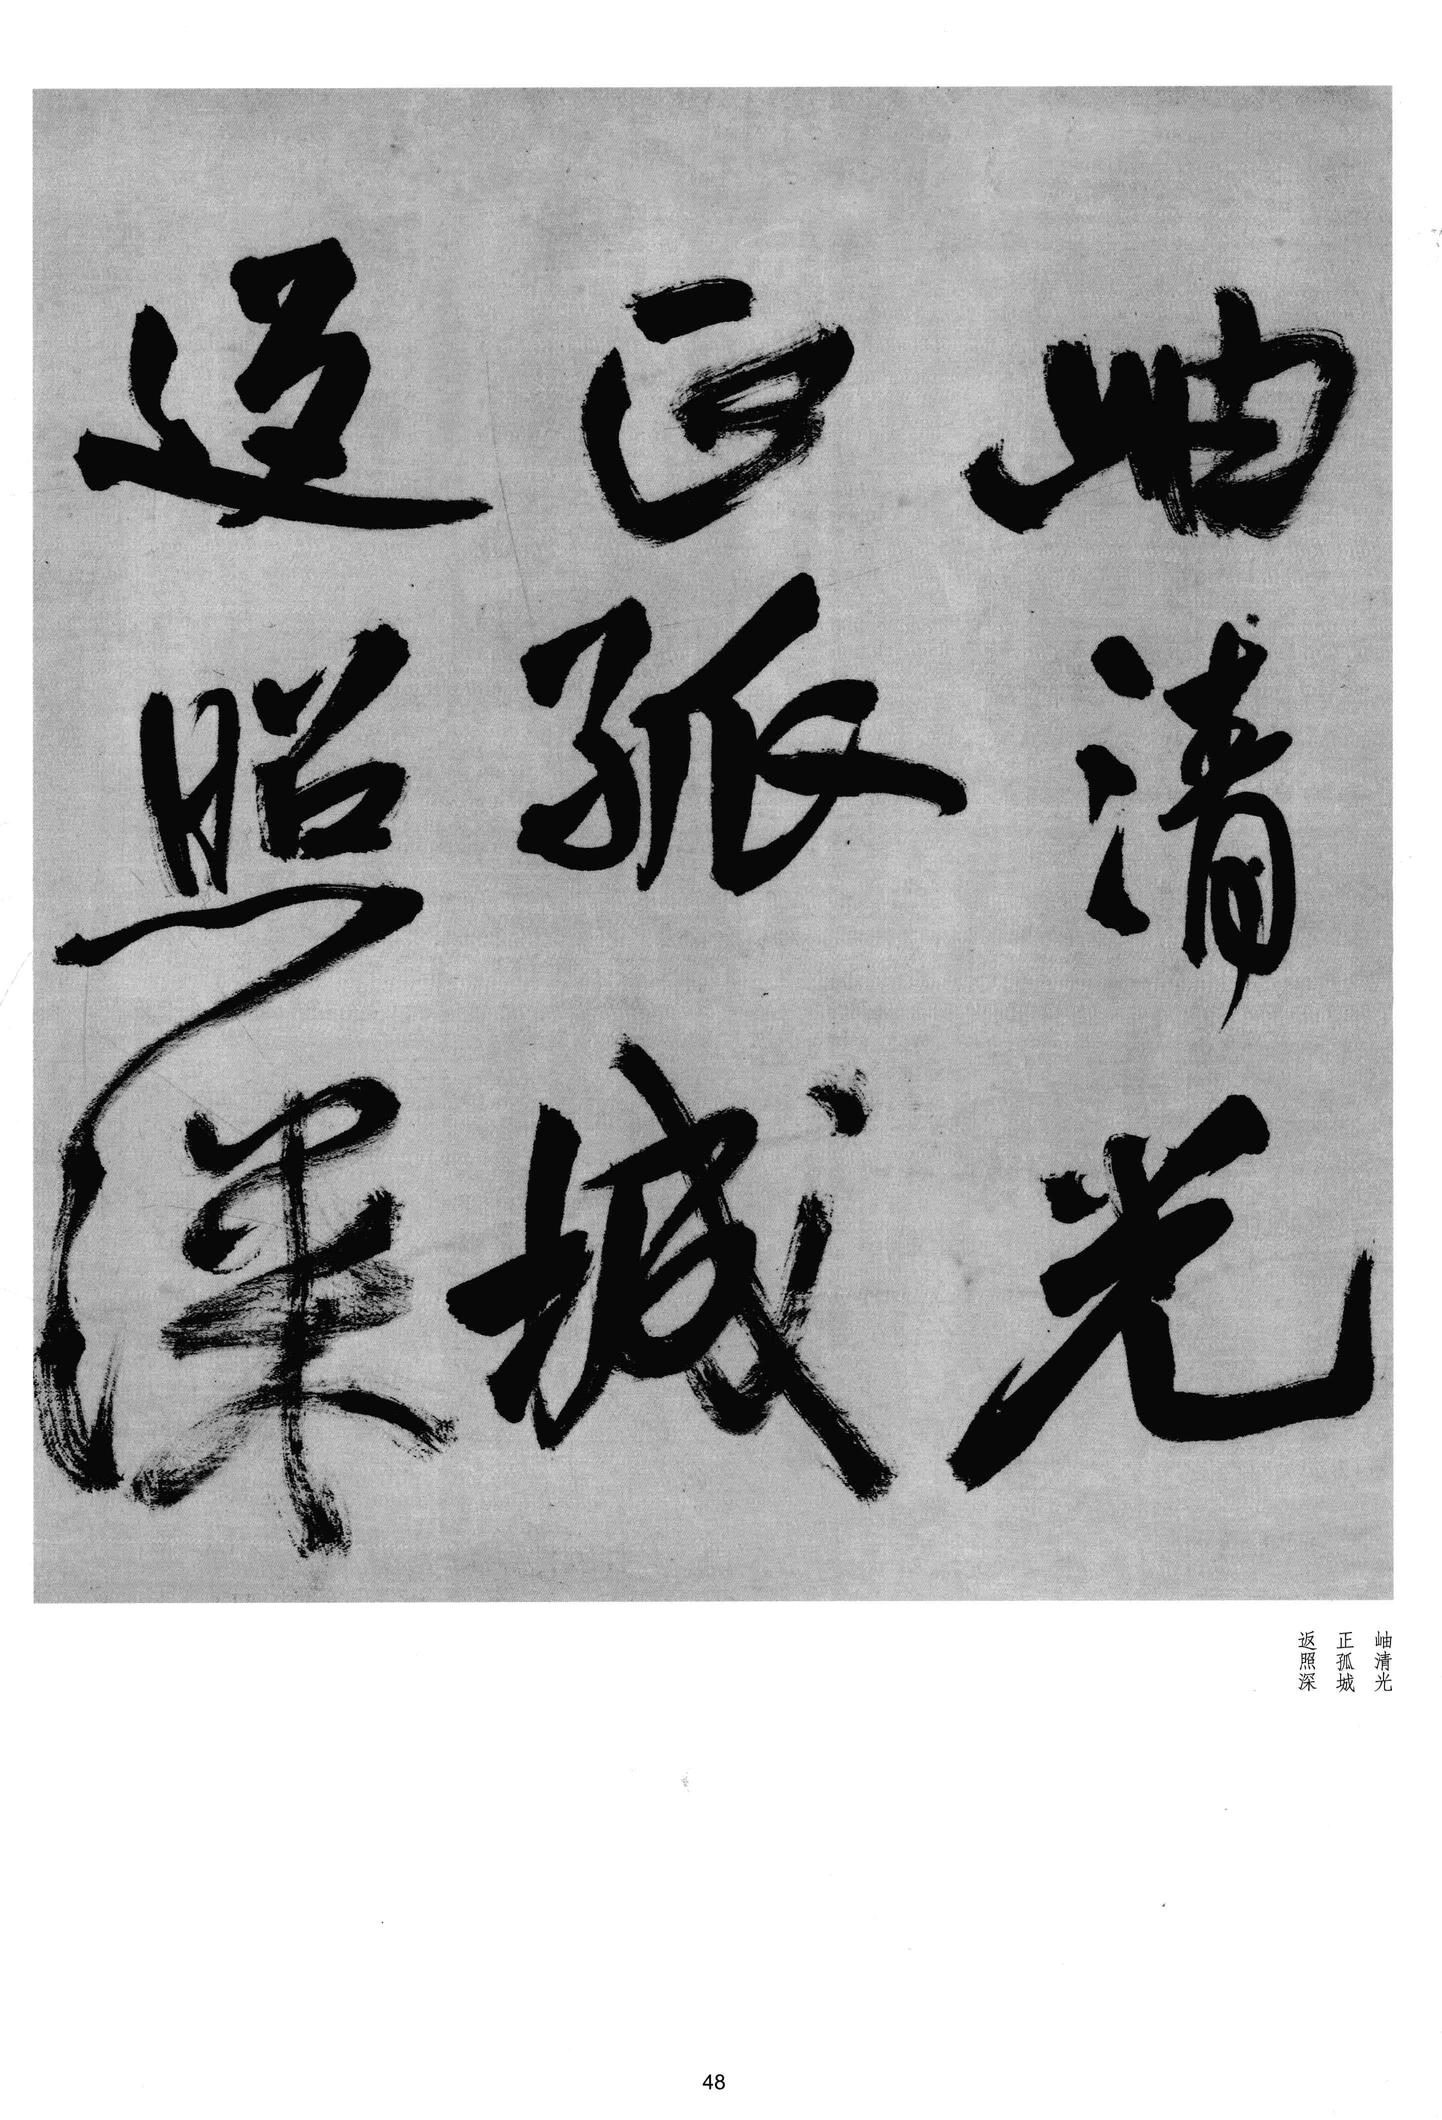 岫清光
正孤城
返照深
岫清光
正孤城
返照深
48